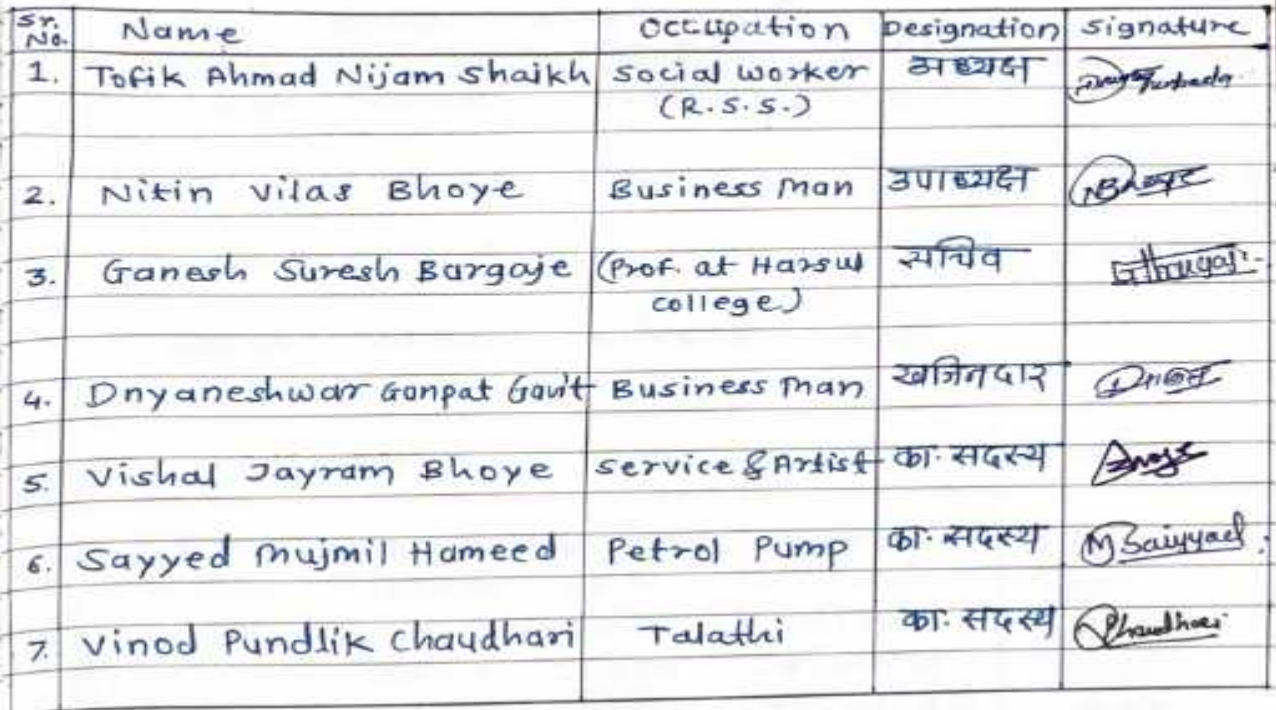 Sr. No. Name Occupation Designation Signature
1. Tofik Ahmad Nijam Shaikh Social Worker अध्यक्ष
(R.S.S.)
2. Nitin Vilas Bhoye Business Man उपाध्यक्ष
3. Ganesh Suresh Bargaje (Prof. at Harsul सचिव
college.)
4. Dnyaneshwar Ganpat Gavit Business Man खजिनदार
5. Vishal Jayram Bhoye Service & Artist का. सदस्य
6. Sayyed Mujmil Hameed Petrol Pump का. सदस्य M Saiyyad
7. Vinod Pundlik Chaudhari Talathi का. सदस्य